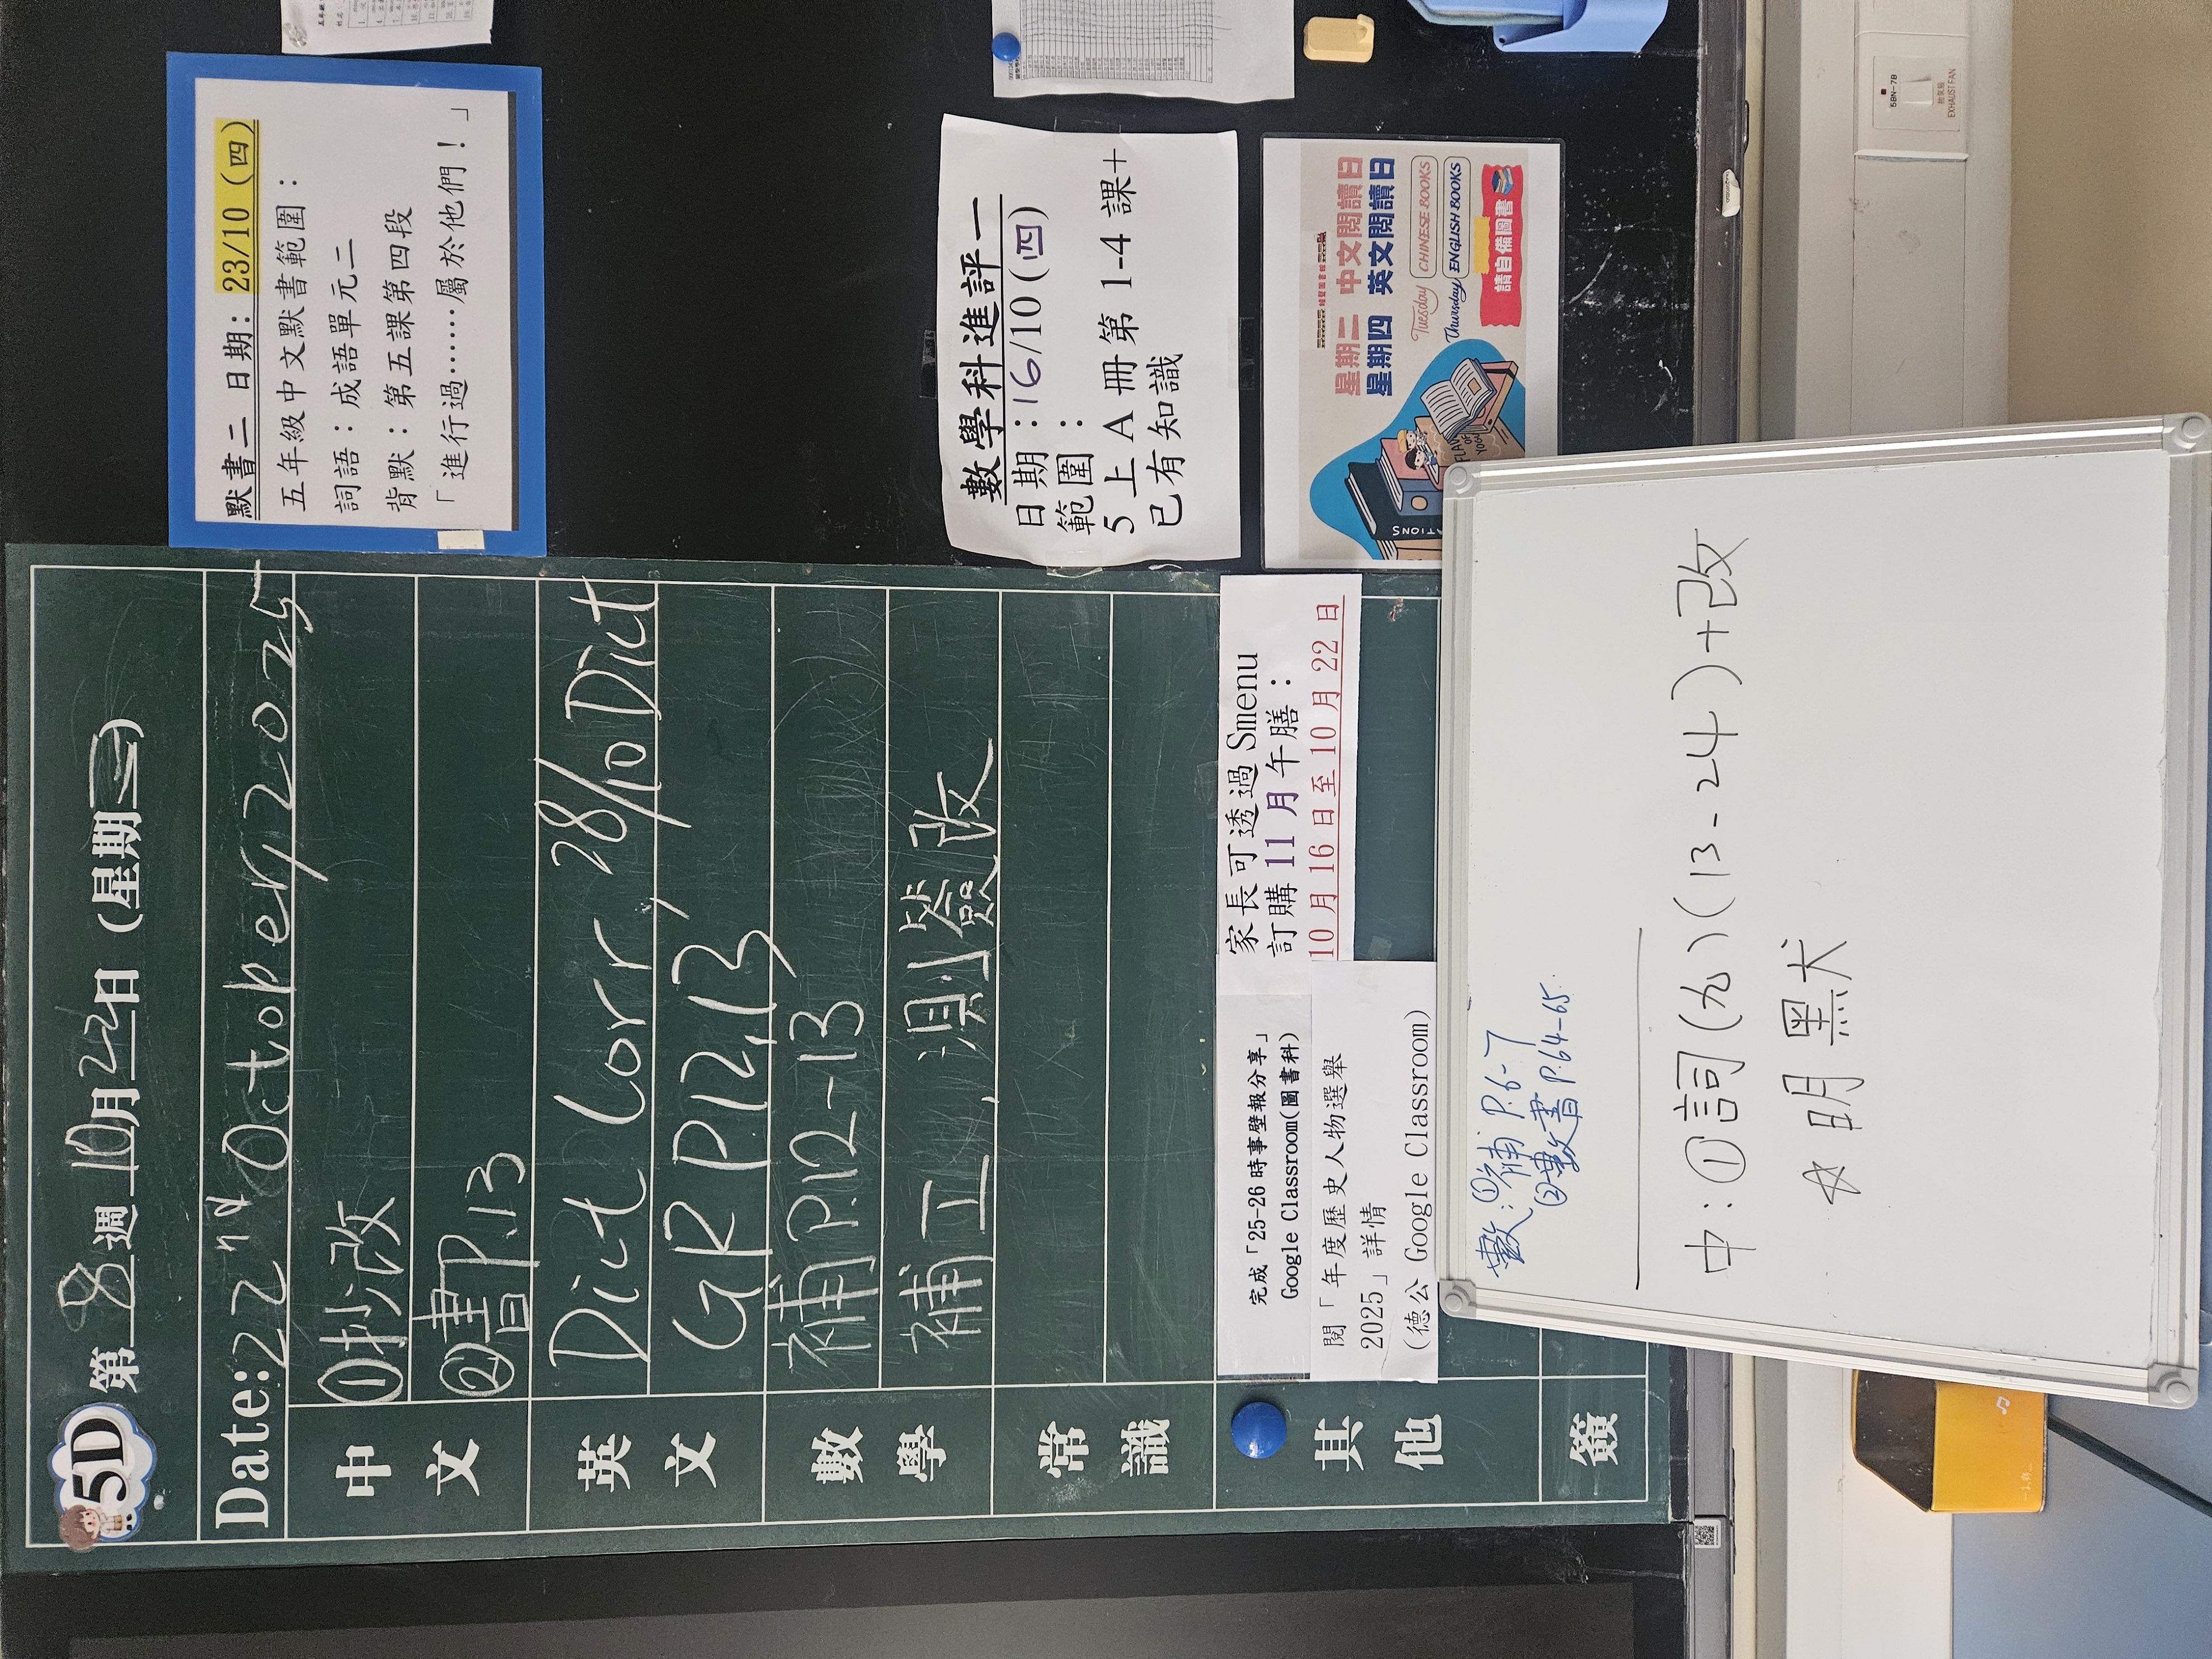 5D 第 8 週 10月22日 (星期三)
Date: 22nd October, 2025
中文
①抄改
②書P.13
英文
Dict Corr, 28/10 Dict
GR P.12,13
數學
補P.12-13
補工, 測驗改
常識
其他
家長可透過 Smenu
訂購 11 月午膳：
10 月 16 日至 10 月 22 日
完成「25-26 時事壁報分享」
Google Classroom(圖書科)
閱「年度歷史人物選舉
2025」詳情
(德公 Google Classroom)
簽
默書二 日期: 23/10 (四)
五年級中文默書範圍：
詞語：成語單元二
背默：第五課第四段
「進行過……屬於他們！」
數學科進評一
日期：16/10(四)
範圍：
5 上 A 冊第 1-4 課+
已有知識
星期二 中文閱讀日
星期四 英文閱讀日
Tuesday CHINESE BOOKS
Thursday ENGLISH BOOKS
請自備圖書
數：①補 P.6-7
②數書 P.64-65
中：①詞(九)(13-24)+改
☆明黑犬
5BN-7B
抽氣扇
EXHAUST FAN